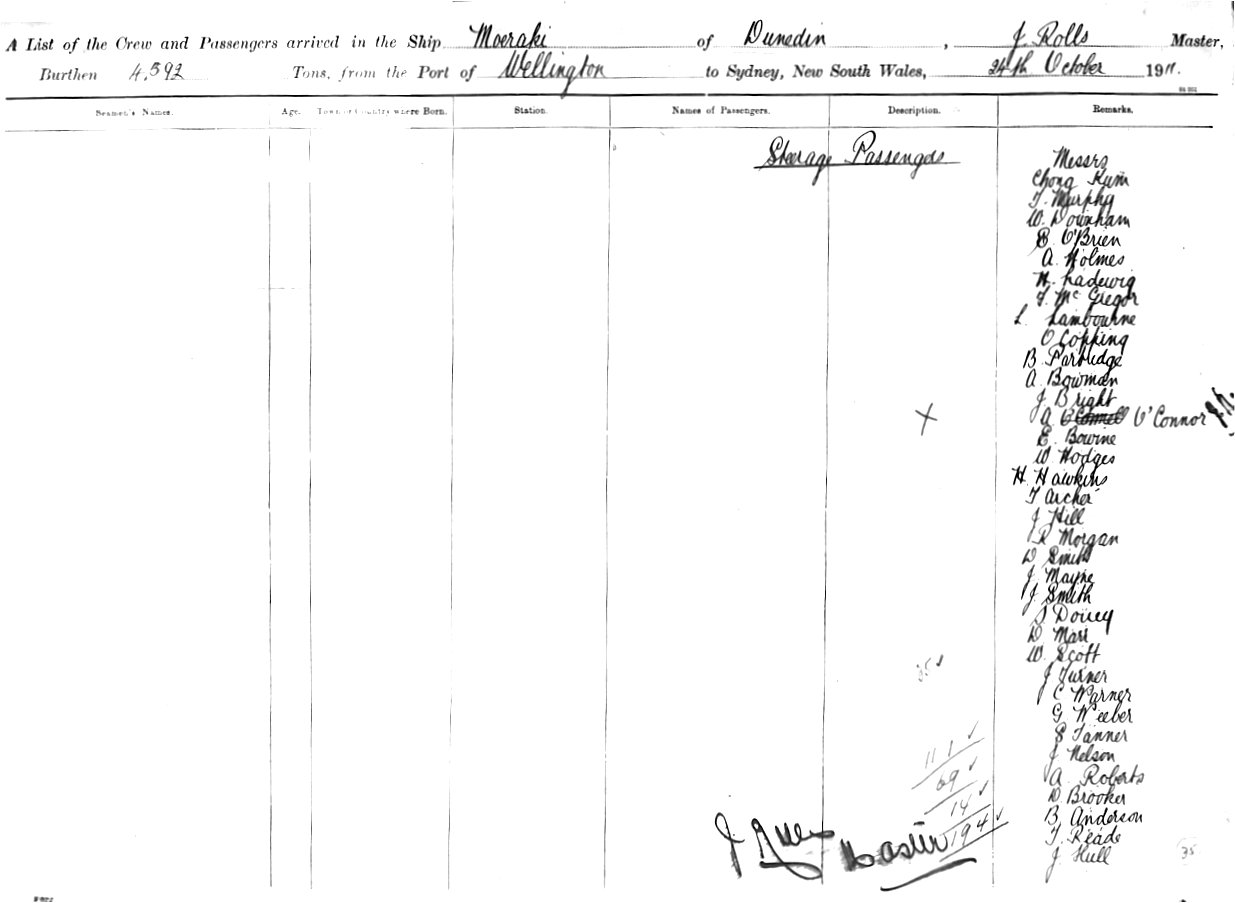 A List of the Crew and Passengers arrived in the Ship Moeraki of Dunedin, J. Rolls Master,
Burthen 4,392 Tons, from the Port of Wellington to Sydney, New South Wales, 24th October 1911.
Seamen's Names. Age. Town or Country where Born. Station. Names of Passengers. Description. Remarks.
Steerage Passengers
Messrs
Chong Kum
T. Murphy
W. Downham
E. O'Brien
A. Holmes
H. Ladewig
T. McGregor
L. Lambourne
O Copping
B. Partridge
A. Bowman
J. Bright
X A. O'Connor
E. Bowine
W Hodges
H. Hawkins
T Archer
J Hill
R Morgan
D Smith
J. Mayne
J. Smith
S
D Marr
W. Scott
35
J Turner
C Warner
G Weeber
S Tanner
111
J Nelson
69
A. Roberts
14
D. Brooker
B. Anderson
194
T. Reade
J. Hull
35
J Rolls Master